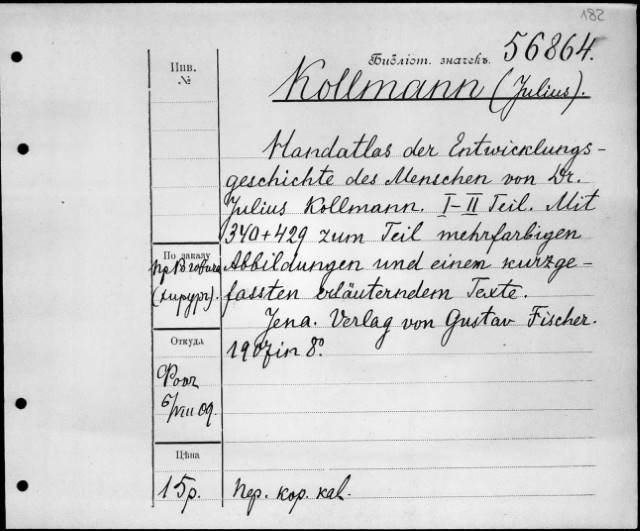 182
Библіот. значекъ. 56864.
Инв.
№
Kollmann (Julius).
Handatlas der Entwicklungs-
geschichte des Menschen von Dr.
Julius Kollmann. I-II Teil. Mit
340+429 zum Teil mehrfarbigen
Abbildungen und einem kurzge-
fassten erläuterndem Texte.
Jena. Verlag von Gustav Fischer.
1907 in 8º.
По заказу
(хирург).
Откуда
6/VIII 09.
Цѣна
15р.
пер. кор. кал.